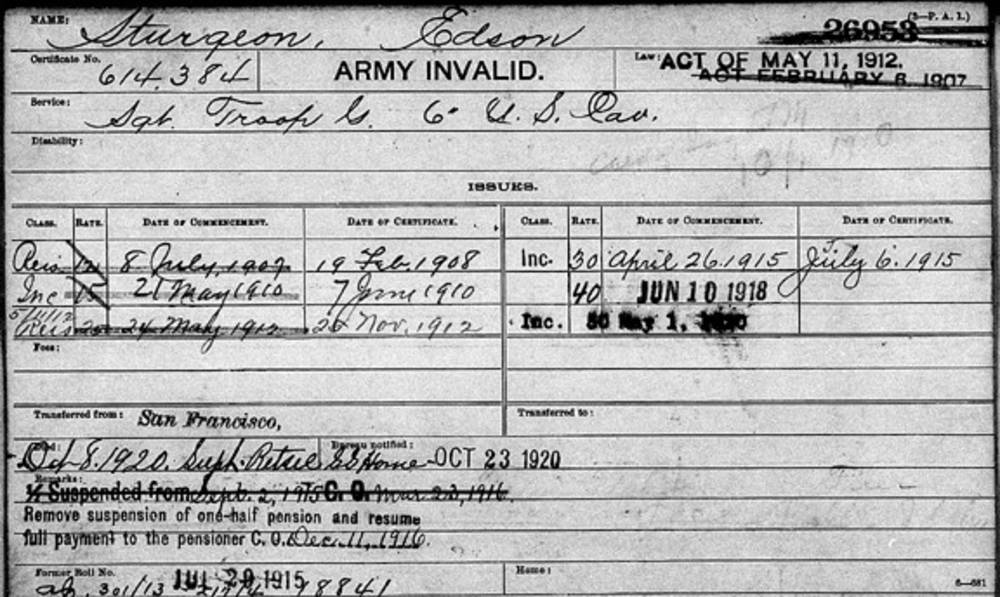 (3—P. A. I.)
NAME: Sturgeon, Edson 26953
Certificate No. 614.384 ARMY INVALID. Law: ACT OF MAY 11, 1912.
ACT FEBRUARY 6, 1907
Service: Sgt. Troop G. 6" U. S. Cav.
Disability:
ISSUES.
CLASS. RATE. DATE OF COMMENCEMENT. DATE OF CERTIFICATE. CLASS. RATE. DATE OF COMMENCEMENT. DATE OF CERTIFICATE.
Reis 12 8 July, 1907 19 Feb. 1908 Inc. 30 April 26.1915 July 6.1915
Inc 15 21 May 1910 7 June 1910 40 JUN 10 1918
5/11/12 Reis 24 May 1912 Nov. 1912 Inc. May 1,
Fees:
Transferred from: San Francisco, Transferred to:
Died: Oct 8.1920. Bureau notified: Home OCT 23 1920
Remarks:
½ Suspended from Sept. 2, 1915 C. O. Mar 23, 1916.
Remove suspension of one-half pension and resume
full payment to the pensioner C. O. Dec. 11, 1916.
Former Roll No. JUL 29 1915 Home:
301/13 18841 6—681